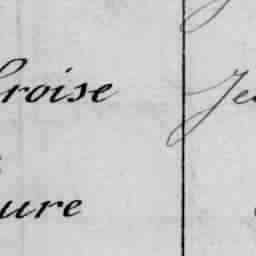 roise Je
ure